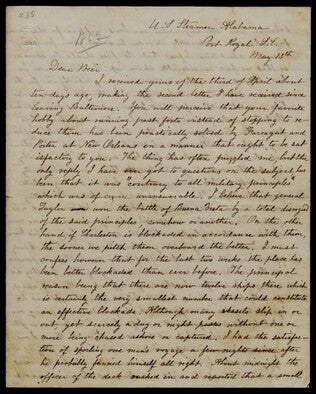 235
1862
U.S. Steamer Alabama
Port Royal S.C.
May 13th
Dear Meir
I received yours of the third of April about
ten days ago, making the second letter I have received since
leaving Baltimore. You will perceive that your favorite
hobby about running past forts instead of stopping to re-
duce them has been practically solved by Farragut and
Porter at New Orleans in a manner that ought to be sat-
isfactory to you. The thing has often puzzled me, but the
only reply I have ever got to questions on the subject, has
been that it was "contrary to all military principles"
which was of course unanswerable. I believe that general
Taylor won the battle of Buena Vista by a total disregard
of the said principles, somehow or another. On the other
hand if Charleston is blockaded in accordance with them,
the sooner we pitch them overboard the better. I must
confess however that for the last two weeks the place has
been better blockaded than ever before. The principal
reason being that there are now twelve ships there which
is certainly the very smallest number that could constitute
an effective blockade. Although many vessels slip in or
out, yet scarcely a day or night passes without one or
more being chased ashore or captured. I had the satisfac-
tion of spoiling one man's voyage a few nights since after
he probably fancied himself all right. About midnight the
officer of the deck rushed in and reported that a small